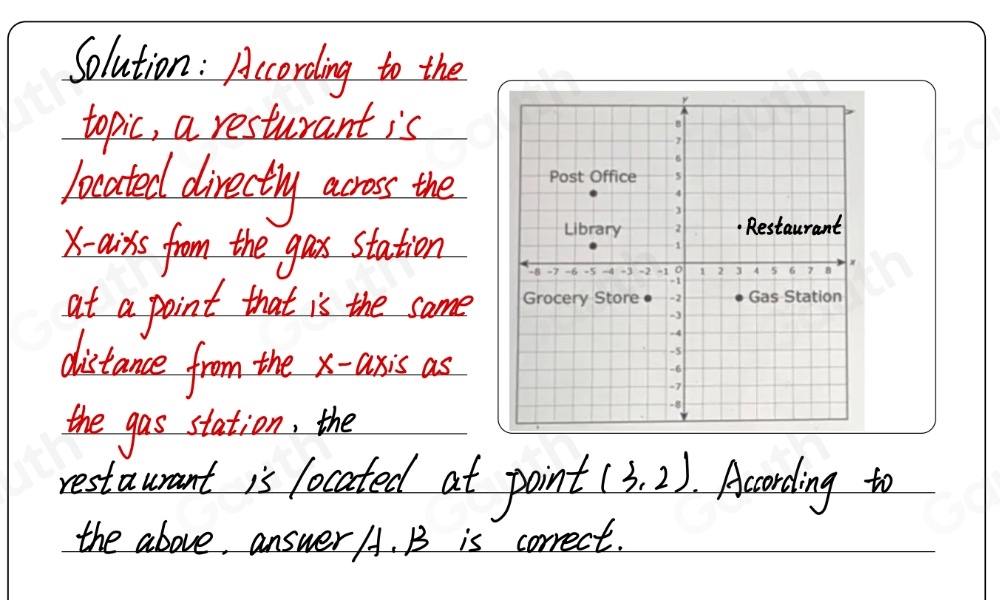 Solution: According to the
topic, a resturant is
located directly across the
x-aixs from the gax station
at a point that is the same
distance from the x-axis as
the gas station, the
restaurant is located at point (3,2). According to
the above, answer A.B is correct.
y
8
7
6
Post Office 5
4
3
Library 2 Restaurant
1
-8 -7 -6 -5 -4 -3 -2 -1 0 1 2 3 4 5 6 7 8 x
-1
Grocery Store -2 Gas Station
-3
-4
-5
-6
-7
-8
Gauth